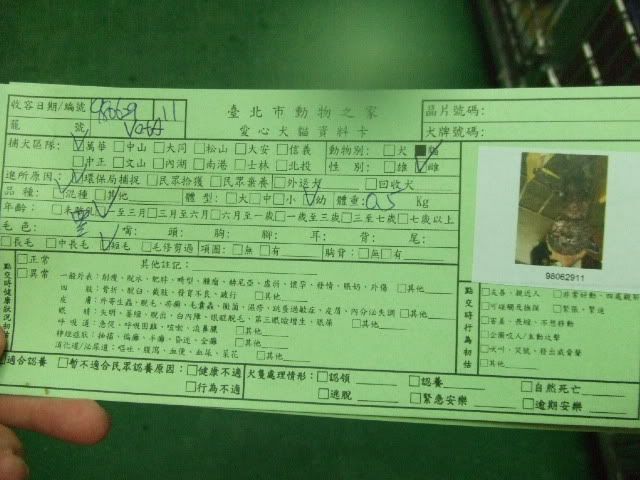 臺北市動物之家
愛心犬貓資料卡
收容日期/編號 980629 11
籠 號
晶片號碼:
犬牌號碼:
捕犬區隊: ☑萬華 □中山 □大同 □松山 □大安 □信義
□中正 □文山 □內湖 □南港 □士林 □北投
動物別: □犬 ■貓
性 別: □雄 ☑雌
進所原因: ☑環保局捕捉 □民眾拾獲 □民眾棄養 □外送犬 □回收犬
品 種: □混種 □其他 體 型: □大 □中 □小 ☑幼 體重: 0.5 Kg
年齡: □未離乳 ☑一至三月 □三月至六月 □六月至一歲 □一歲至三歲 □三至七歲 □七歲以上
毛 色: 黑 嘴: 頭: 胸: 腳: 耳: 背: 尾:
□長毛 □中長毛 ☑短毛 □毛修剪過 項圈: □無 □有 胸背: □無 □有
98062911
點交時健康狀況初估
□正常
□異常
其他註記:
一般外表: 削瘦、脫水、肥胖、畸型、腫瘤、赫尼亞、虛弱、懷孕、發情、賬奶、外傷 □其他
四 肢: 骨折、脫臼、截肢、發育不良、跛行 □其他
皮 膚: 外寄生蟲、脫毛、疥癬、毛囊蟲、黴菌、濕疹、跳蚤過敏症、皮屑、內分泌失調 □其他
眼 睛: 失明、萎縮、脫出、白內障、眼瞼脫毛、第三眼瞼增生、眼屎 □其他
呼吸道: 急促、呼吸困難、咳嗽、流鼻膿 □其他
神經症狀: 抽搐、偏癱、半癱、昏迷、全癱 □其他
消化道/泌尿道: 嘔吐、腹瀉、血便、血尿、菜花 □其他
點交時行為初估
□友善、親近人 □非常好動、四處觀望
□可碰觸或抽探 □緊張、緊迫
□害羞、畏縮、不想移動
□企圖咬人/主動攻擊
□吠叫、哭號、發出威脅聲
□其他
適合認養 □暫不適合民眾認養原因: □健康不適
□行為不適
犬隻處理情形: □認領 □認養 □自然死亡
□逃脫 □緊急安樂 □逾期安樂